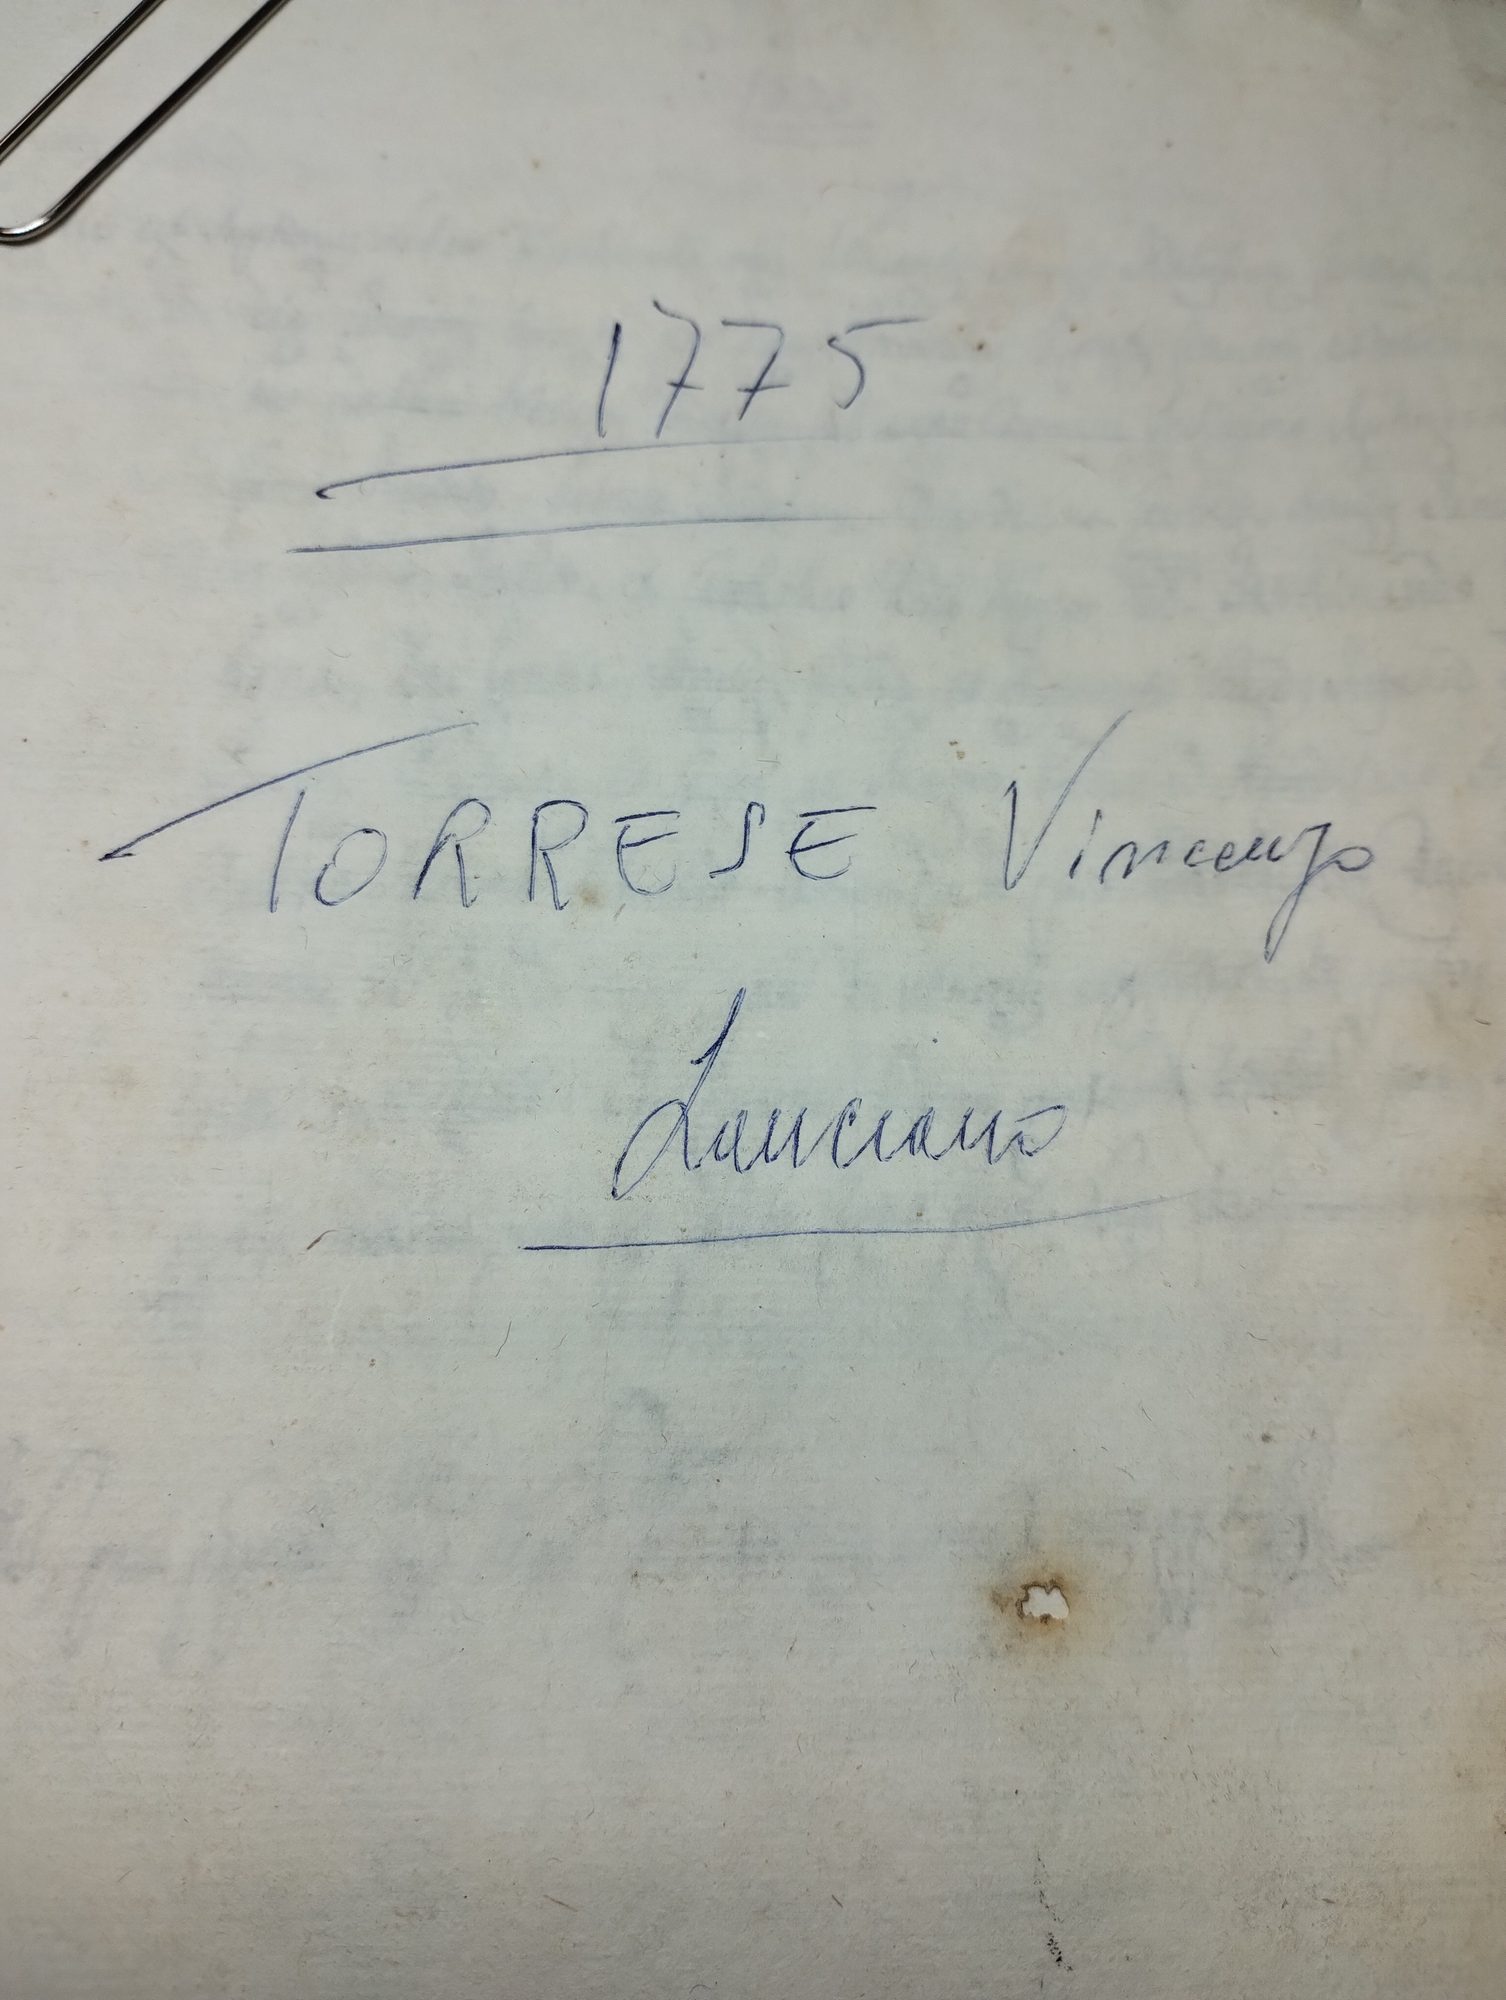 1775
TORRESE Vincenzo
Lanciano